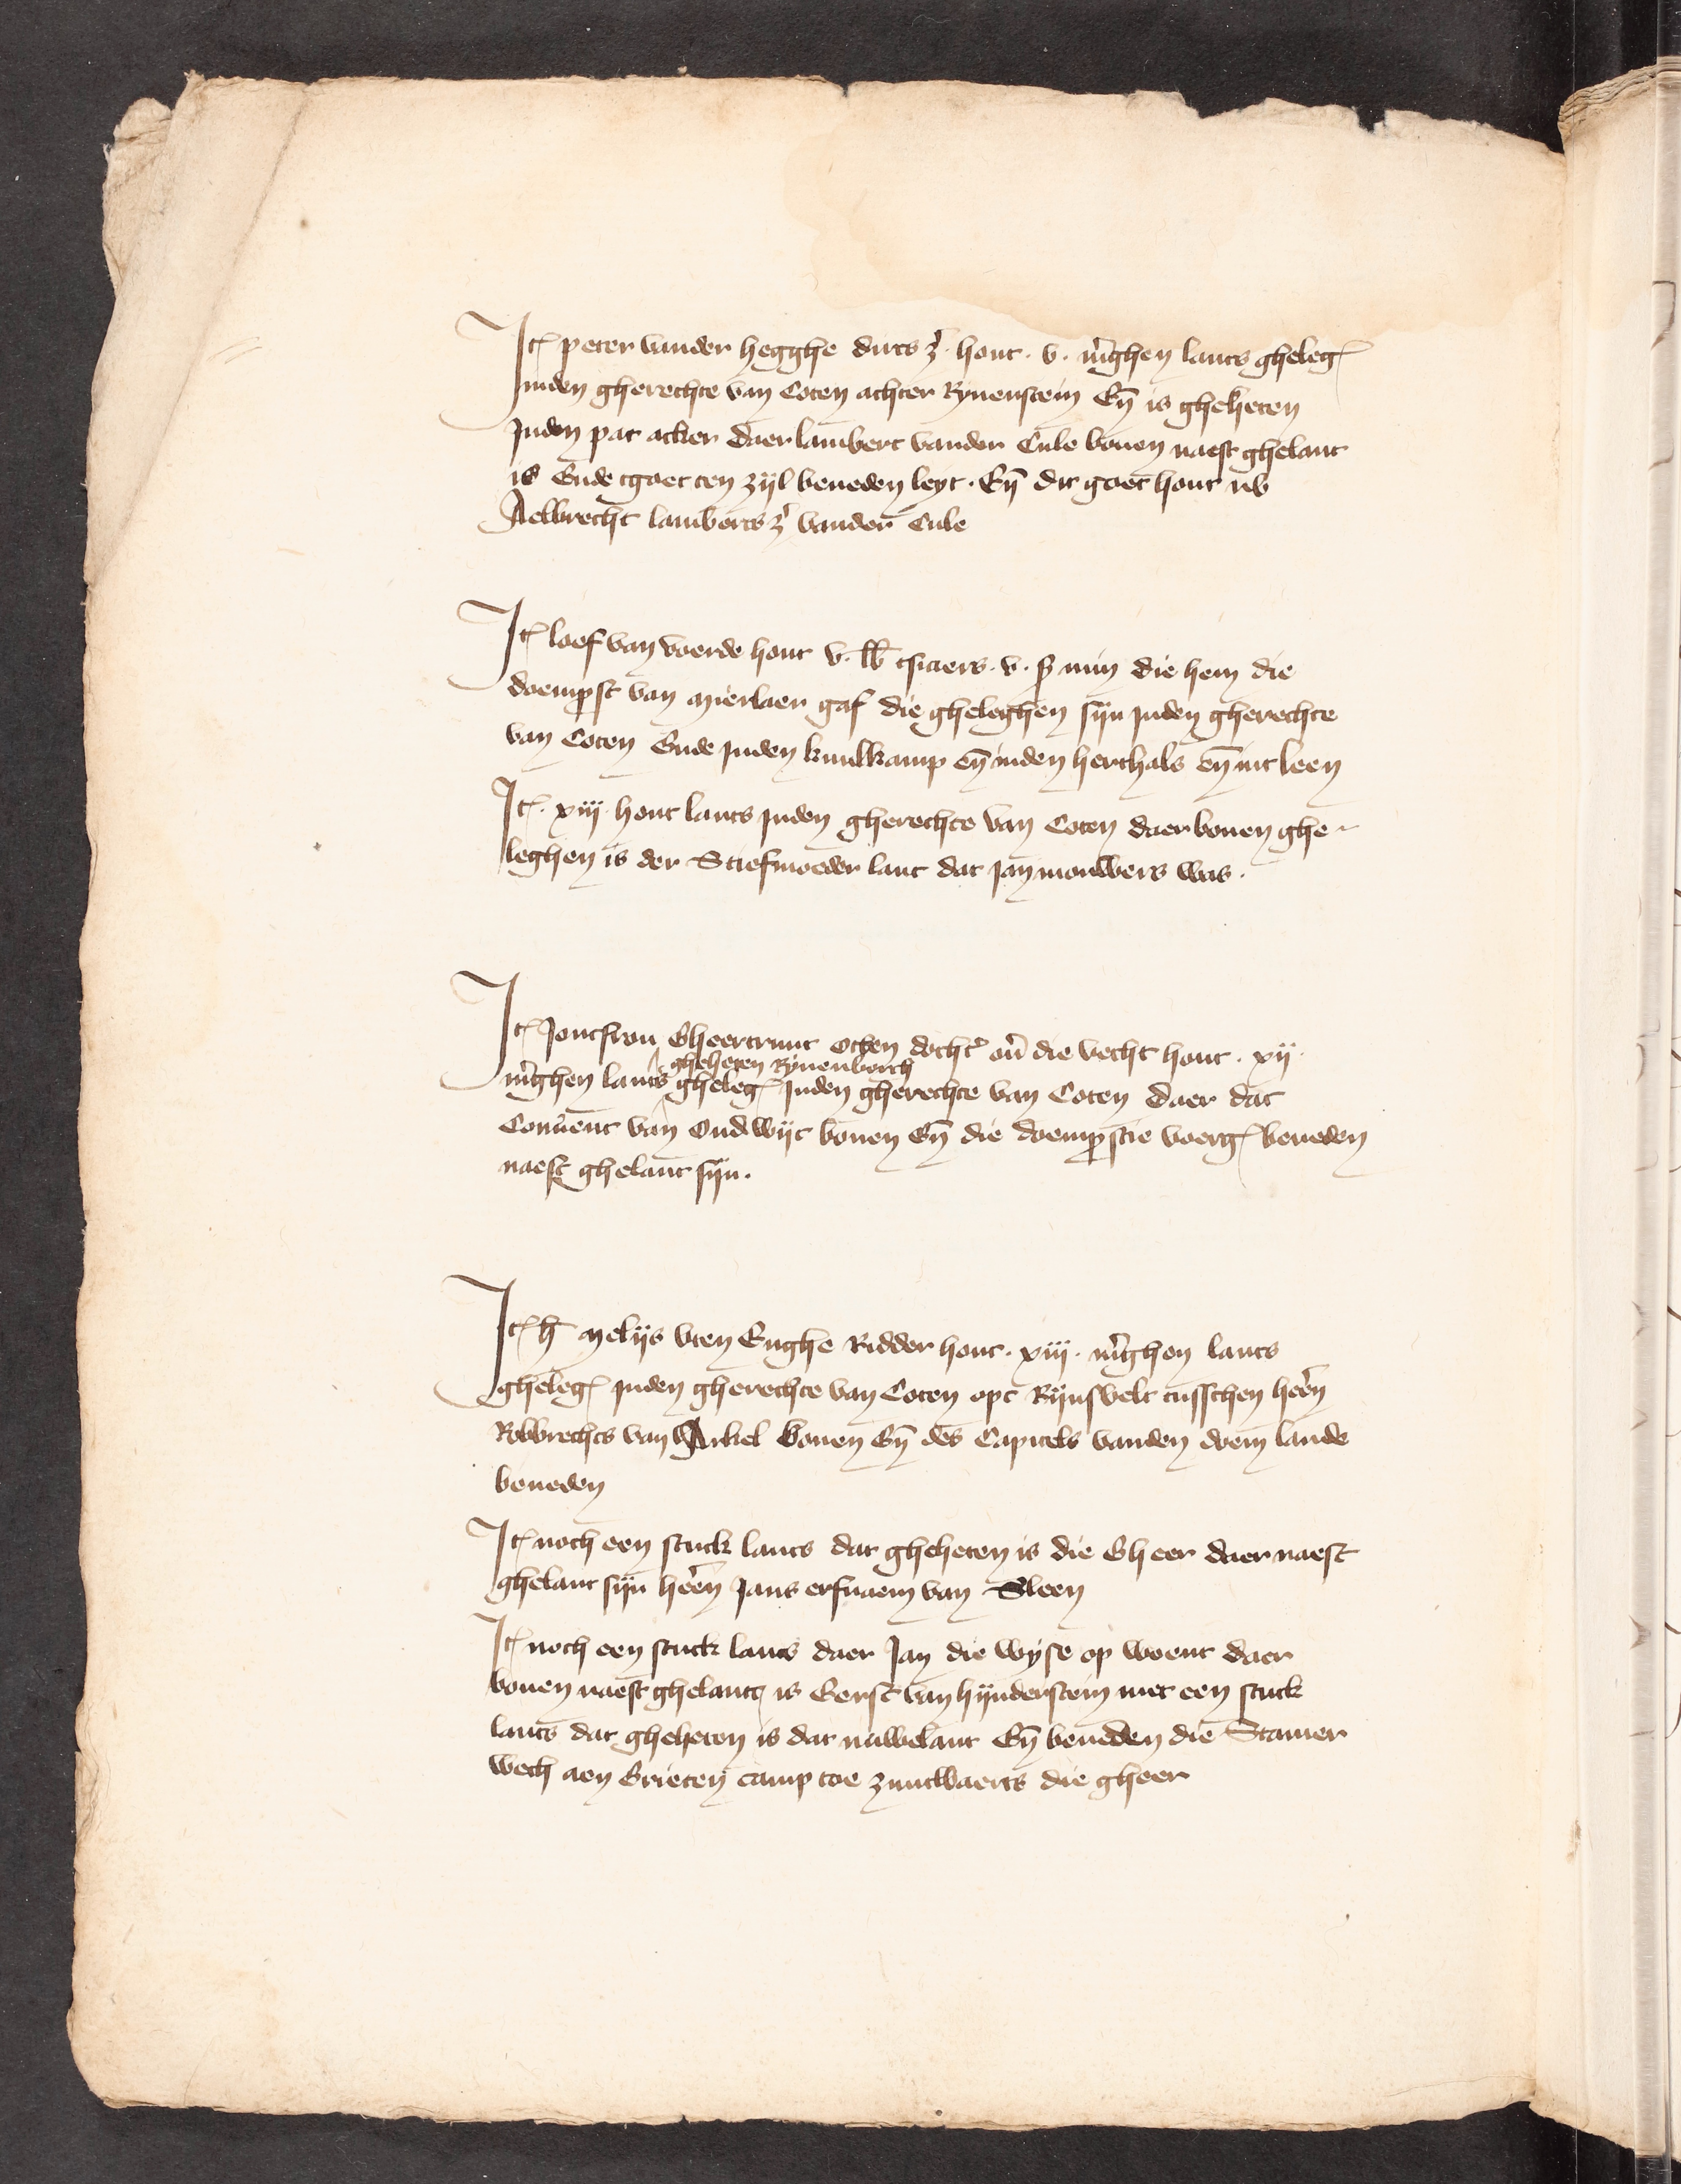 Jt peter vander hegghe dircs z hout · v · mghen lants gheleg
Jnden gherechte van Coten achter Rynenstein En is gheheten
Jnden pat acker daer lambert vander Cule bouen naest ghelant
is Ende tgaet ten zijl beneden leyt · En dit goet hout nv
Aelbrecht lamberts z vander Cule
Jt loef van voerde hout v · lb tsiaers · v · min die hem die
doemprst van mierlaer gaf die gheleghen sijn Jnden gherechte
van Coten Ende Jnden knulkamp en inden herthals en int leen
Jt · xiij · hont lants Jnden gherechte van Coten daer bouen ghe-
leghen is der Stiefmoeder lant dat Jan mouwers was ·
Jt Joncfrou Gheertruut otten docht ou die vecht hout · xij ·
gheheten Rynenborch
mghen lants gheleg Jnden gherechte van Coten daer dat
Conuent van Oudwijc bouen En die doemprstie voerg beneden
naest ghelant sijn ·
Jt h melijs vten Enghe Ridder hout · xiij · mghen lants
gheleg Jnden gherechte van Coten opt Rijnsvelt tusschen heren
Robbrechts van Arkel bouen En des Capitels vanden doem lande
beneden
Jt noch een stuck lants dat gheheten is die Gheer daer naest
ghelant sijn heren Jans erfnaem van Sleen
Jt noch een stuck lants daer Jan die wyse op woent daer
bouen naest ghelant is Eerst van hijnderstein met een stuck
lants dat gheheten is dat nuwelant En beneden die Stamer
wech aen Grieten camp toe zuutwaerts die gheer